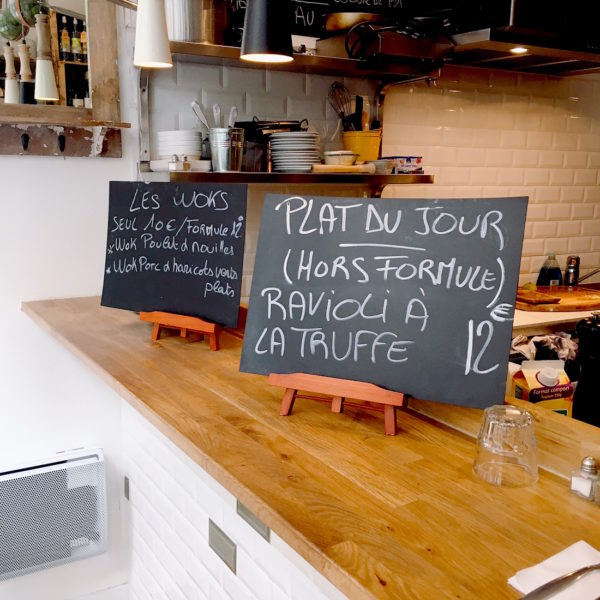 AU
LES WOKS
SEUL 10€/FORMULE 12
* WOK Poulet d nouilles
* WOK Porc d haricots verts
plats
PLAT DU JOUR
(HORS FORMULE)
RAVIOLI À
LA TRUFFE 12€